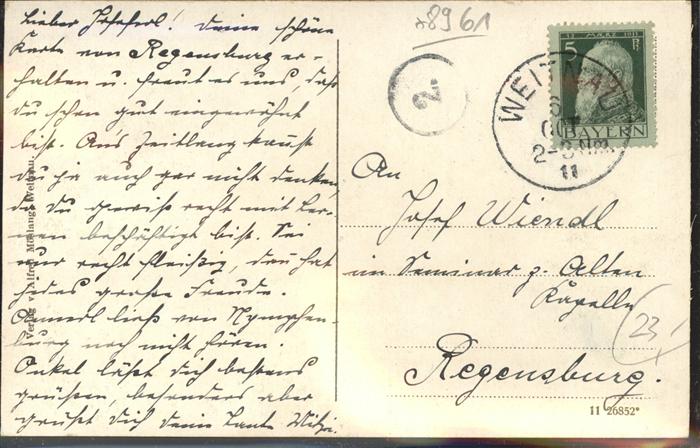 Lieber Joseferl! Deine schöne
Karte von Regensburg er-
halten u. freut es uns, daß
du schon gut eingewöhnt
bist. An's Zeitlang kannst
du ja auch gar nicht denken,
da du gewiß recht mit Ler-
nen beschäftigt bist. Sei
nur recht fleißig, dan hat
jedes große Freude.
Annerl ließ von Nymphen-
burg noch nicht hören.
Onkel läßt dich bestens
grüßen, besonders aber
grüßt dich deine Tante Mitzi.
Verlag v. Alfred Weitnau.
8961
2.
WEITNAU
6
OCT
2-3 Nm.
11
12 MÄRZ 1911
5 Pf
BAYERN
An
Josef Wiendl
im Seminar z. Alten
Kapelle
Regensburg.
23
11 26852*